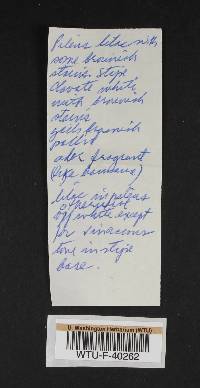 Pileus lilac with
some brownish
stains. Stipe
clavate white
with brownish
stains
gills brownish
pallid
odor fragrant
(like bananas)
lilac in pileus
off white except
for vinaceous
tone in stipe
base.
U. Washington Herbarium (WTU)
WTU-F-40262